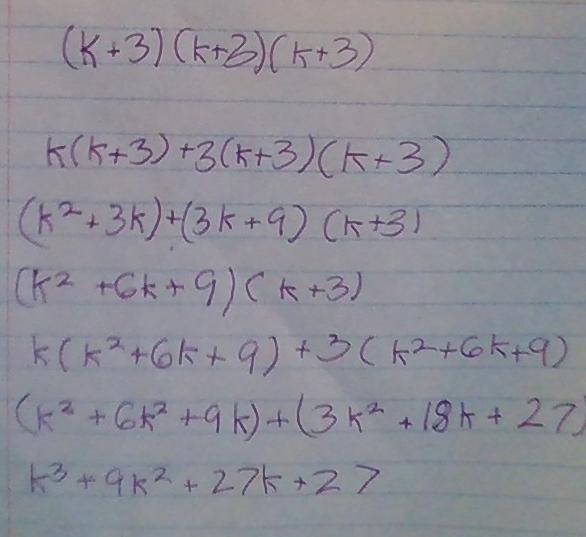 (K+3)(k+3)(k+3)
k(k+3)+3(k+3)(k+3)
(k²+3k)+(3k+9)(k+3)
(k²+6k+9)(k+3)
k(k²+6k+9)+3(k²+6k+9)
(k³+6k²+9k)+(3k²+18k+27)
k³+9k²+27k+27